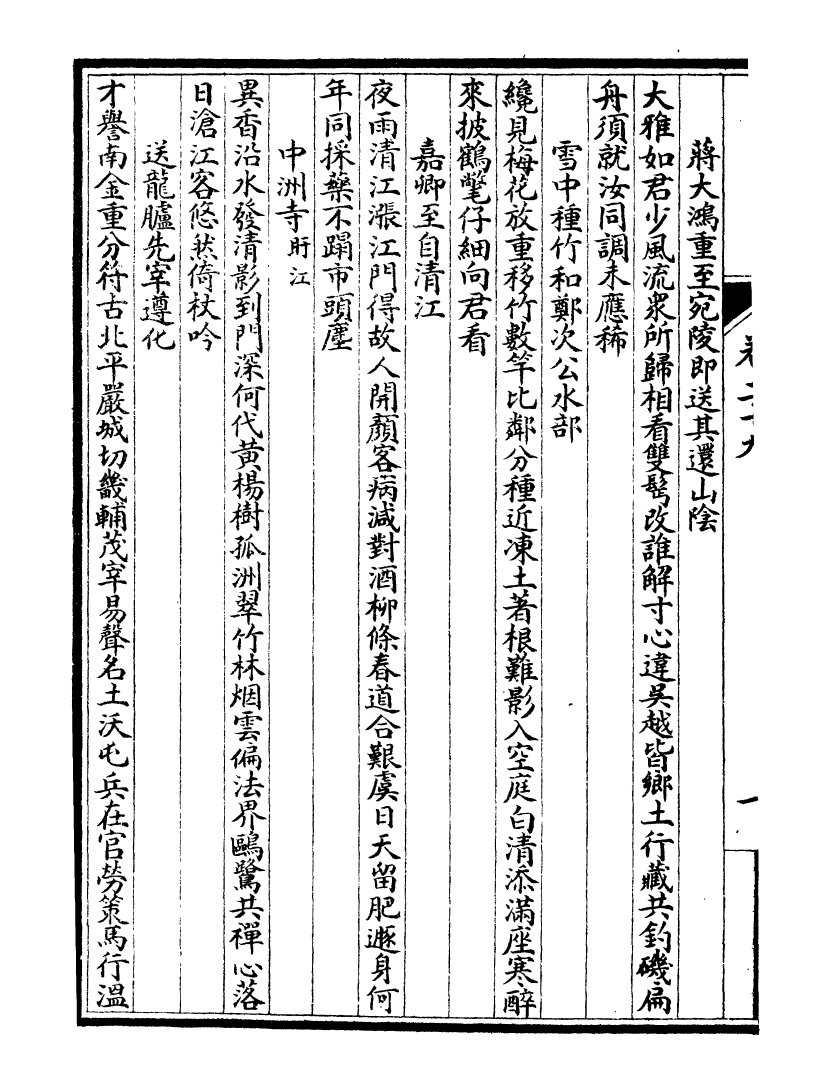 蔣大鴻重至宛陵即送其還山陰
大雅如君少風流衆所歸相看雙鬓改誰解寸心違吳越皆鄉土行藏共釣磯扁
舟須就汝同調未應稀
雪中種竹和鄭次公水部
纔見梅花放重移竹數竿比鄰分種近凍土著根難影入空庭白清添滿座寒醉
來披鶴氅仔細向君看
嘉卿至自清江
夜雨清江漲江門得故人開顏客病減對酒柳條春道合艱虞日天留肥遯身何
年同採藥不蹋市頭塵
中洲寺盱江
異香沿水發清影到門深何代黃楊樹孤洲翠竹林烟雲偏法界鷗鷺共禪心落
日滄江客悠然倚杖吟
送龍臚先宰遵化
才譽南金重分符古北平嚴城切畿輔茂宰易聲名土沃屯兵在官勞策馬行溫
卷二十九
一